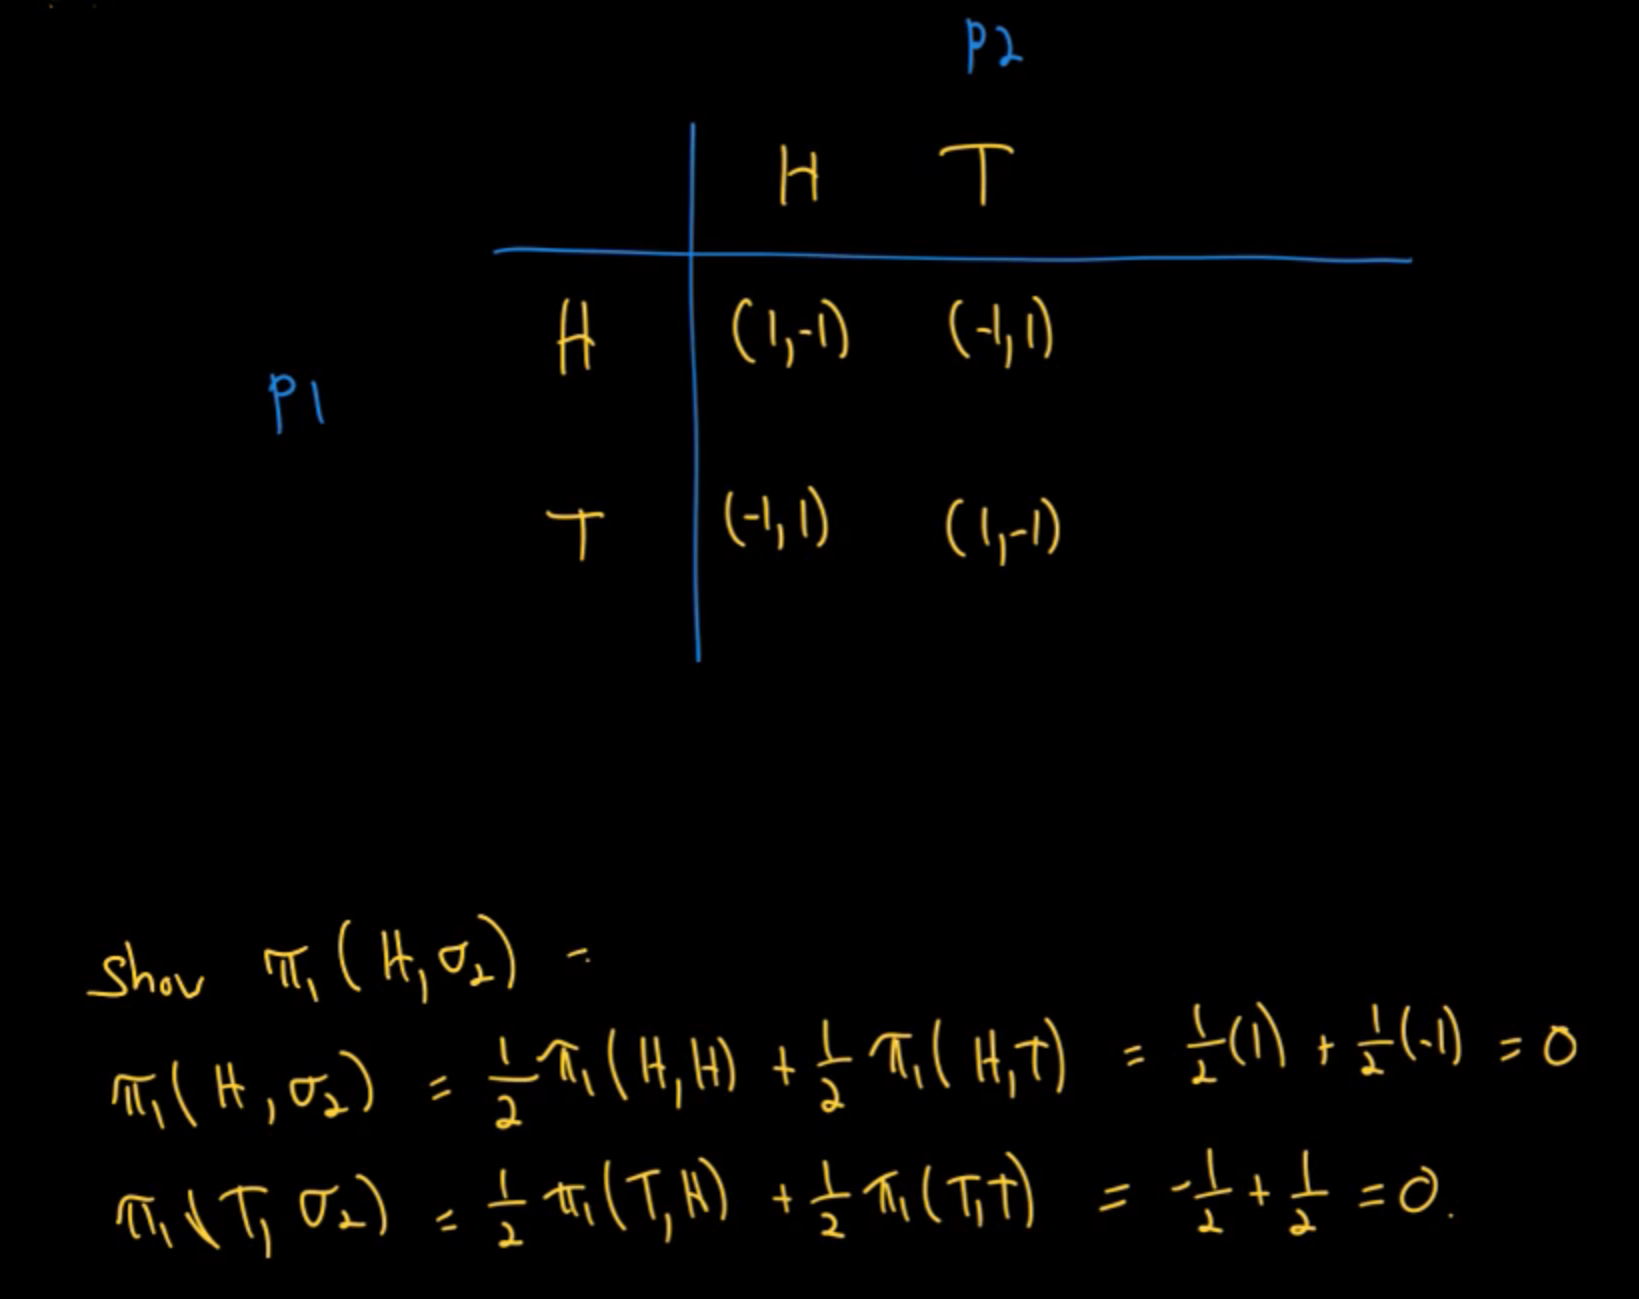 P2
H T
H (1,-1) (-1,1)
P1
T (-1,1) (1,-1)
Show π₁(H,σ₂) =
π₁(H,σ₂) = 1/2 π₁(H,H) + 1/2 π₁(H,T) = 1/2(1) + 1/2(-1) = 0
π₁(T,σ₂) = 1/2 π₁(T,H) + 1/2 π₁(T,T) = -1/2 + 1/2 = 0.